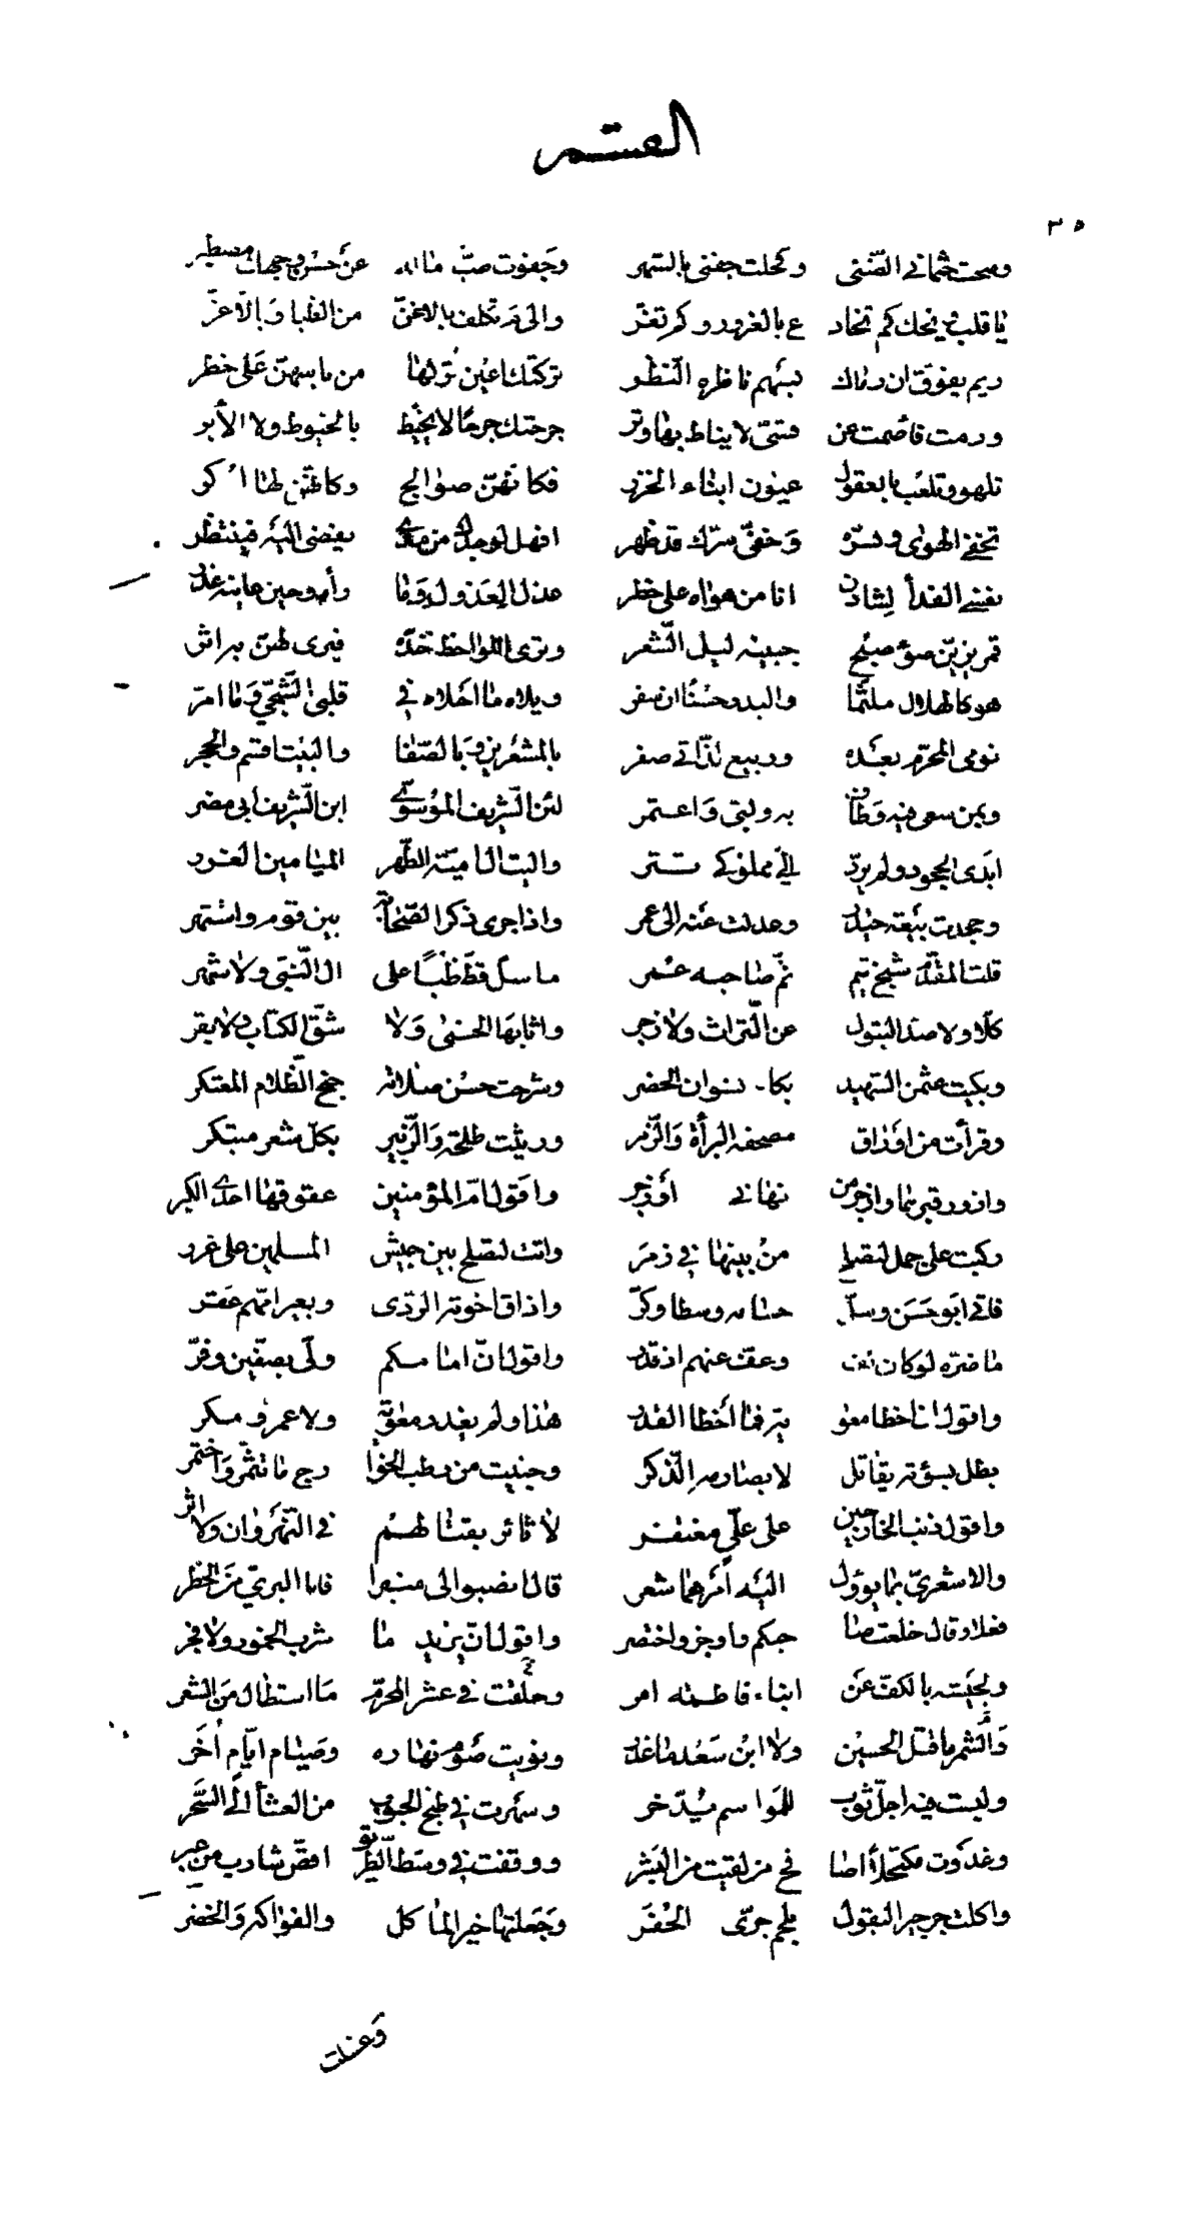 ٣٥
ومنحت جثماني الضنى وكحلت جفني بالسهر وجفوت صبّ ماله عن حسن وجهك مصطبر
يا قلب ويحك كم تخاد ع بالغرور وكم تغر والى م تكلف بالاغنّ من الظبا وبالاغر
ريم يفوق ان رماك بسهم ناظره النظر تركتك اعين تركها من باسهن على خطر
ورمت فاصمت عن قسيّ لا يناط بها وتر جرحتك جرحا لا يخيط بالخيوط ولا الأبر
تلهو وتلعب بالعقول عيون ابناء الخزر فكانهن صوالج وكانهن لها اكر
تخفي الهوى وتسره وخفيّ سرك قد ظهر افهل لوجدك من مدى يفضى اليه فينتظر
نفسي الفدأ لشادن انا من هواه على خطر عذل العذول وما رأه وحين عاينه عذر
قمر يزين ضوء صبح جبينه ليل الشعر وترى اللواحظ خده فيرى لهن به اثر
هو كالهلال ملثما والبدر حسنا ان سفر ويلاه ما احلاه في قلبي الشجي وما امر
نومي المحرم بعده وربيع لذاتي صفر بالمشعرين وبالصفا والبيت اقسم والحجر
وبمن سعى فيه وطاف به ولبى واعتمر لئن الشريف الموسوي ابن الشريف ابي مضر
ابدى الجحود ولم يرد الي مملوكي تتر واليت ال امية الطهر الميامين الغرر
وجحدت بيعة حيدر وعدلت عنه الى عمر واذا جرى ذكر الصحابة بين قوم واشتهر
قلت المقدم شيخ تيم ثم صاحبه عمر ما سل قط ظبا على ال النبي ولا شهر
كلا ولا صد البتول عن التراث ولا زجر واثابها الحسنى ولا شق الكتاب ولا بقر
وبكيت عثمن الشهيد بكاء نسوان الحضر وشرحت حسن صلاته جنح الظلام المعتكر
وقرأت من اوراق مصحفه البرأة والزمر ورثيت طلحة والزبير بكل شعر مبتكر
وازور قبرهما وازجر من نهاني اوزجر واقول ام المؤمنين عقوقها احدى الكبر
ركبت على جمل لتصلح من بينها في زمر واتت لتصلح بين جيش المسلمين على غرر
فاتى ابو حسن وسل حسامه وسطا وكر واذاق اخوته الردى وبعير امهم عقر
ما ضره لو كان كف وعف عنهم اذ قدر واقول ان امامكم ولى بصفين وفر
واقول ان اخطا معو ية فما أخطا القدر هذا ولم يغدر معوية ولا عمرو مكر
بطل بسوءته يقاتل لا بصارمه الذكر وجنيت من رطب الخوا رج ما تثمر واختمر
واقول ذنب الخارجين على علي مغتفر لا ثائر بقتالهم في النهروان ولا اثر
والاشعري بما يؤول اليه أمرهما شعر قال انصبوا لي منبرا فانا البري من الخطر
فعلا وقال خلعت صا حبكم واوجز واختصر واقول ان يزيد ما شرب الخمور ولا فجر
ولجيشه بالكف عن ابناء فاطمة امر وحلقت في عشر المحرم ما استطال من الشعر
والشمر ما قتل الحسين ولا ابن سعد ما غدر ونويت صوم نهاره وصيام ايام أخر
ولبست فيه اجل ثوب للمواسم يدخر وسهرت في طبخ الحبوب من العشأ الى السحر
وغدوت مكتحلا اصا فح من لقيت من البشر ووقفت في وسط الطريق اقص شارب من عبر
واكلت جرجير البقول بلحم جرى الحفر وجعلتها خير المأكل والفواكه والخضر
وغسلت